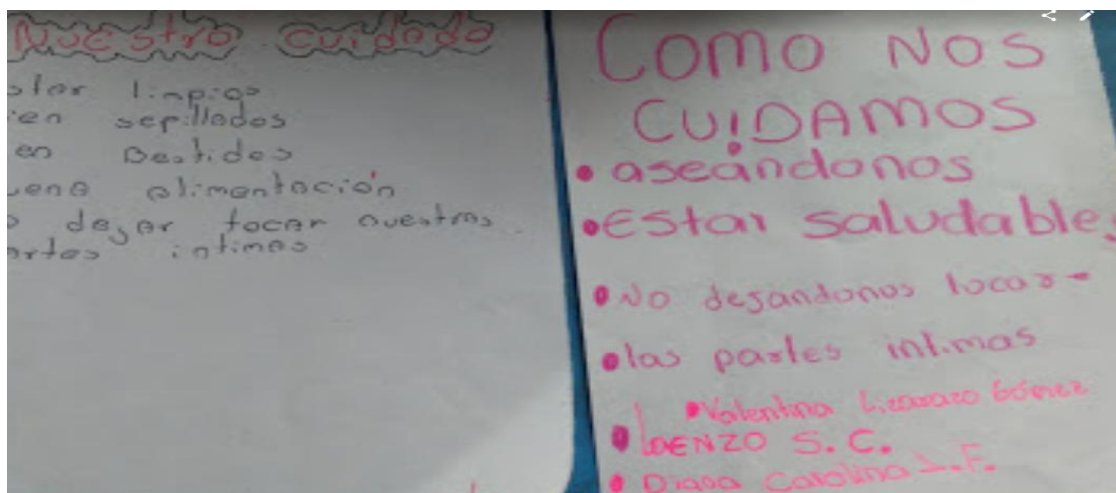 Nuestro cuidado
star limpios
ien sepillados
en Bestidos
uena alimentación
o dejar tocar nuestras
artes intimas
COMO NOS
CUIDAMOS
• aseándonos
• EStar Saludable,
• No dejandonos tocar-
• las partes intimas
• Valentina Lizarazo Gómez
• LOENZO S. C.
• Diana Carolina S.F.